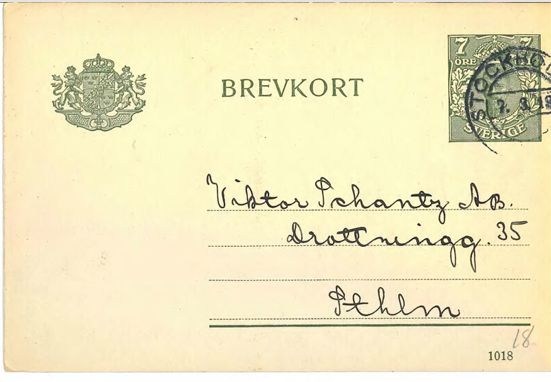 BREVKORT
7 7
ÖRE
SVERIGE
STOCKHOL
2. 3. 19
Viktor Schantz AB.
Drottningg. 35
Sthlm
18
1018